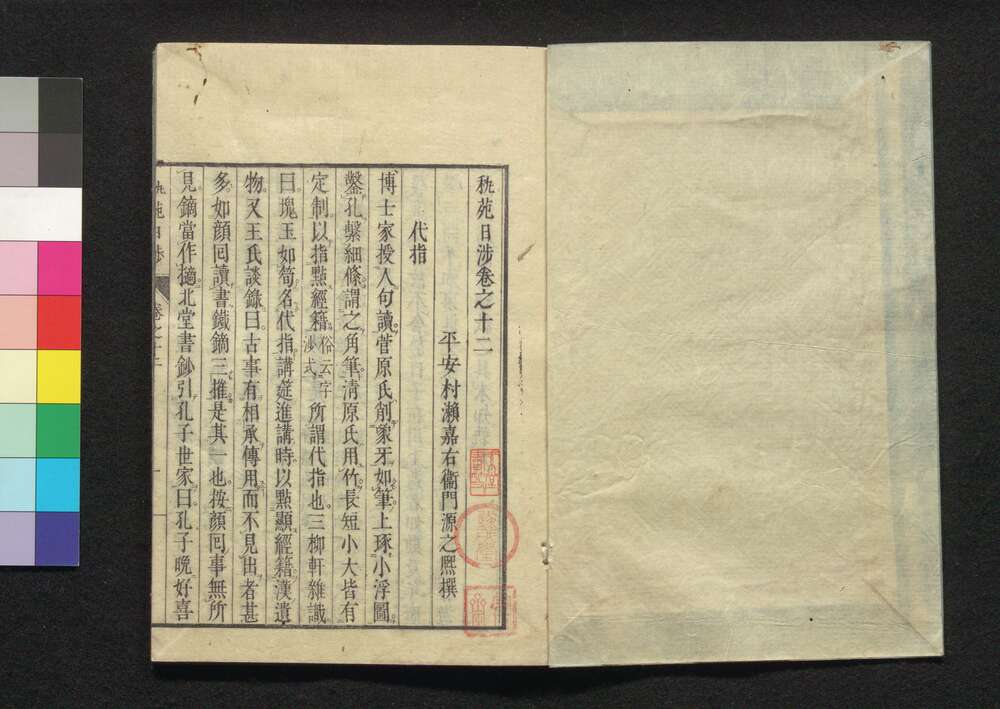 秇苑日渉巻之十二
平安村瀬嘉右衞門源之熈撰
代指
博士家授人句讀菅原氏削象牙如筆上琢小浮圖
鑿孔繫細條謂之角筆淸原氏用竹長短小大皆有
定制以指點經籍俗云字沙式所謂代指也三柳軒雜識
曰塊玉如筍名代指講筵進講時以點顯經籍漢遺
物又王氏談錄曰古事有相承傳用而不見出者甚
多如顏回讀書鐵鏑三摧是其一也按顏回事無所
見鏑當作擿北堂書鈔引孔子世家曰孔子晩好喜
秇苑日渉
卷之十二
一